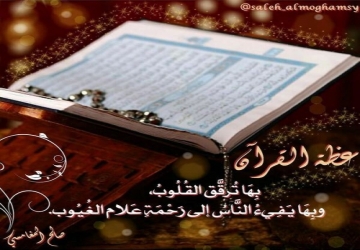 @saleh_almoghamsy
عظة القرآن
بِهَا تُرقَّق القُلُوبُ،
وبِهَا يَفِيءُ النَّاسُ إلى رَحْمَةِ عَلام الغُيُوب.
صالح المغامسي